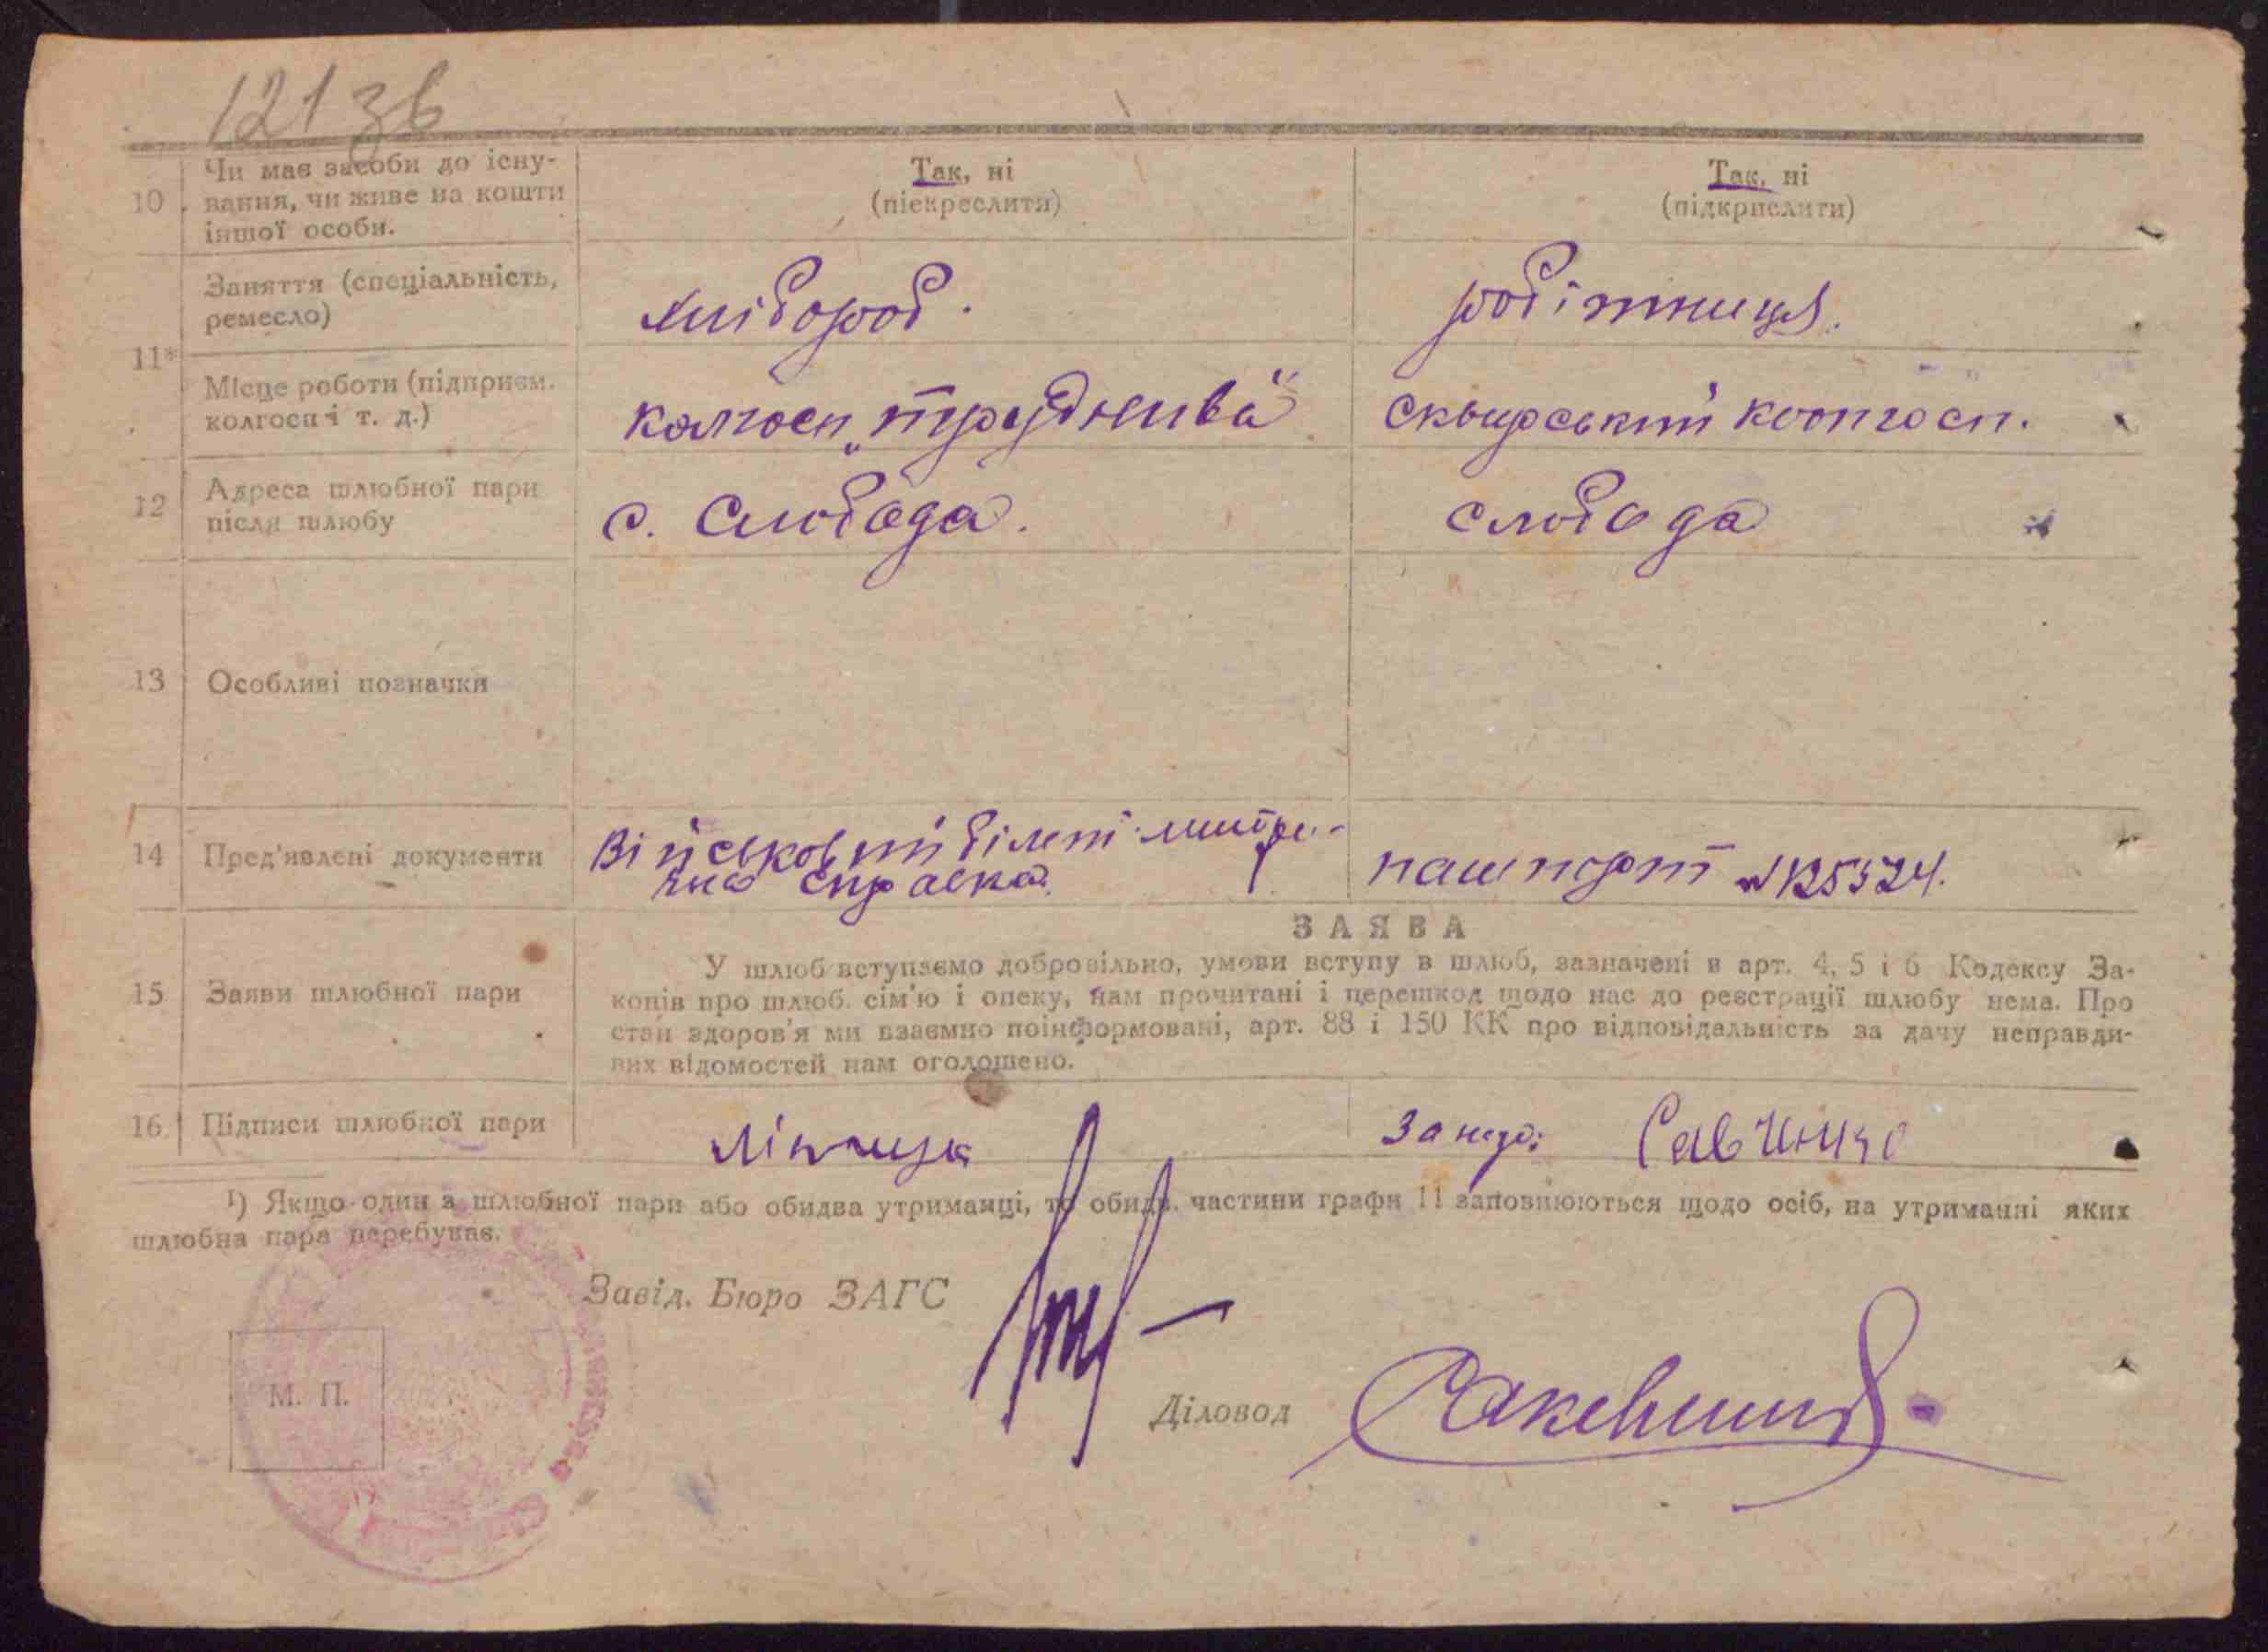 121 зв
10
Чи має засоби до існу-
вання, чи живе на кошти
іншої особи.
Так, ні
(піекреслити)
Так, ні
(підкрислити)
11*
Заняття (спеціальність,
ремесло)
хлібороб.
робітниця.
Місце роботи (підприєм.
колгосп і т. д.)
колгосп „труднива"
Сквирський коопгосп.
12
Адреса шлюбної пари
після шлюбу
с. Слобода.
слобода
13
Особливі позначки
14
Пред'явлені документи
Військовий білет метри-
чна справка
пашпорт №
15
Заяви шлюбної пари
ЗАЯВА
У шлюб вступаємо добровільно, умови вступу в шлюб, зазначені в арт. 4, 5 і 6 Кодексу За-
конів про шлюб. сім'ю і опеку, нам прочитані і перешкод щодо нас до реєстрації шлюбу нема. Про
стан здоров'я ми взаємно поінформовані, арт. 88 і 150 КК про відповідальність за дачу неправди-
вих відомостей нам оголошено.
16
Підписи шлюбної пари
За
¹) Якщо один з шлюбної пари або обидва утриманці, то обидв. частини графи 11 заповнюються щодо осіб, на утриманні яких
шлюбна пара перебуває.
Завід. Бюро ЗАГС
М. П.
Діловод